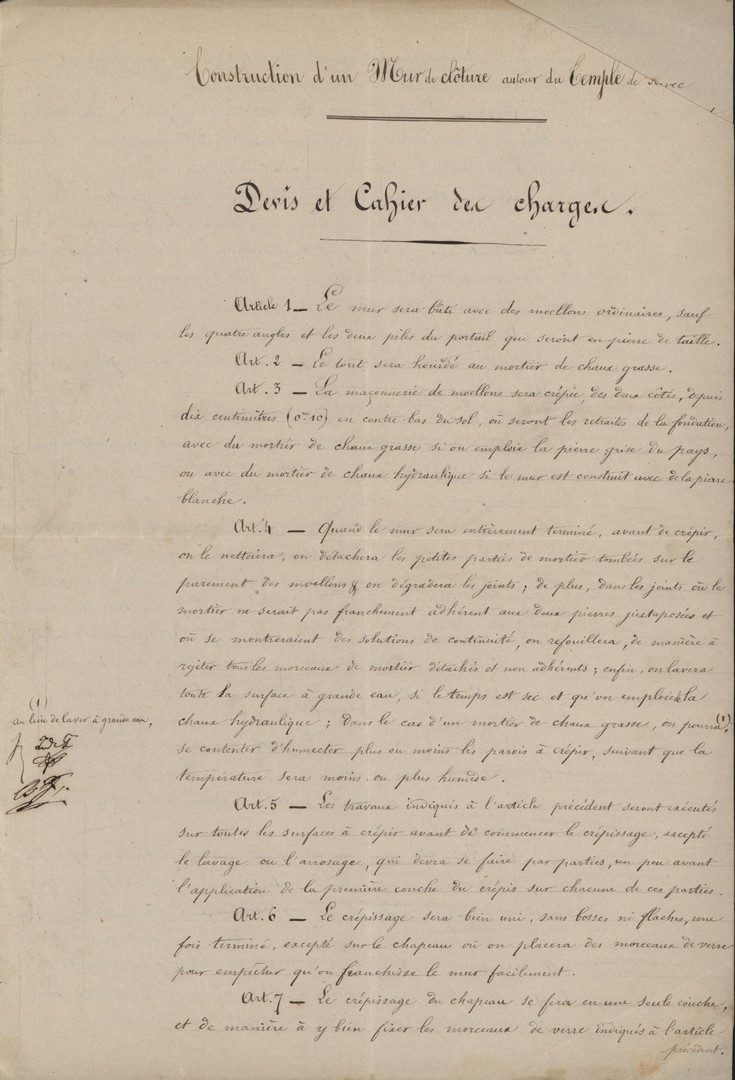 Construction d'un Mur de clôture autour du Temple de
Devis et Cahier des charges.
Article 1 — Le mur sera bâti avec des moellons ordinaires, sauf
les quatre angles et les deux piles du portail qui seront en pierre de taille.
Art. 2 — Le tout sera hourdé au mortier de chaux grasse.
Art. 3 — La maçonnerie de moellons sera crépie, des deux côtés, depuis
dix centimètres (0m 10) en contre-bas du sol, où seront les retraites de la fondation,
avec du mortier de chaux grasse si on emploie la pierre grise du pays,
ou avec du mortier de chaux hydraulique si le mur est construit avec de la pierre
blanche.
Art. 4 — Quand le mur sera entièrement terminé, avant de crépir,
on le nettoiera, on détachera les petites parties de mortier tombées sur le
parement des moellons & on dégradera les joints ; de plus, dans les joints où le
mortier ne serait pas franchement adhérent aux deux pierres juxtaposées et
où se montreraient des solutions de continuité, on refouillera, de manière à
rejeter tous les morceaux de mortier détachés et non adhérents ; enfin, on lavera
toute la surface à grande eau, si le temps est sec et qu'on emploie la
chaux hydraulique ; Dans le cas d'un mortier de chaux grasse, on pourra (1),
se contenter d'humecter plus ou moins les parois à crépir, suivant que la
température sera moins ou plus humide.
(1)
au lieu de laver à grande eau,
Art. 5 — Les travaux indiqués à l'article précédent seront exécutés
sur toutes les surfaces à crépir avant de commencer le crépissage, excepté
le lavage ou l'arrosage, qui devra se faire par parties, un peu avant
l'application de la première couche du crépis sur chacune de ces parties.
Art. 6 — Le crépissage sera bien uni, sans bosses ni flaches, une
fois terminé, excepté sur le chapeau où on placera des morceaux de verre
pour empêcher qu'on franchisse le mur facilement.
Art. 7 — Le crépissage du chapeau se fera en une seule couche,
et de manière à y bien fixer les morceaux de verre indiqués à l'article
précédent.